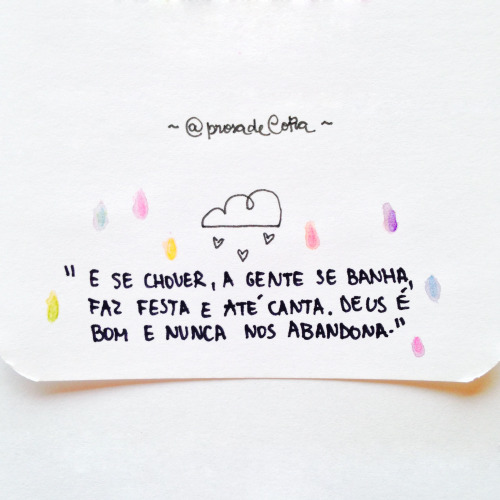 ~ @prosadeCora ~
" E SE CHOVER, A GENTE SE BANHA,
FAZ FESTA E ATÉ CANTA. DEUS É
BOM E NUNCA NOS ABANDONA."